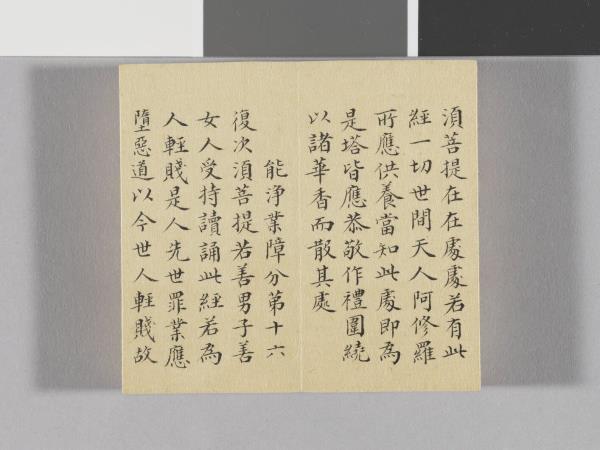 須菩提在在處處若有此
經一切世間天人阿修羅
所應供養當知此處即為
是塔皆應恭敬作禮圍繞
以諸華香而散其處
能淨業障分第十六
復次須菩提若善男子善
女人受持讀誦此經若為
人輕賤是人先世罪業應
墮惡道以今世人輕賤故